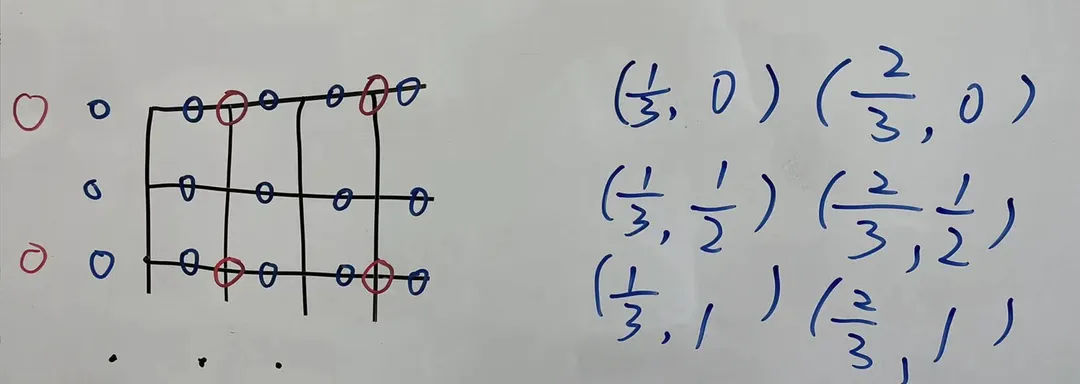 (1/3, 0) (2/3, 0)
(1/3, 1/2) (2/3, 1/2)
(1/3, 1) (2/3, 1)